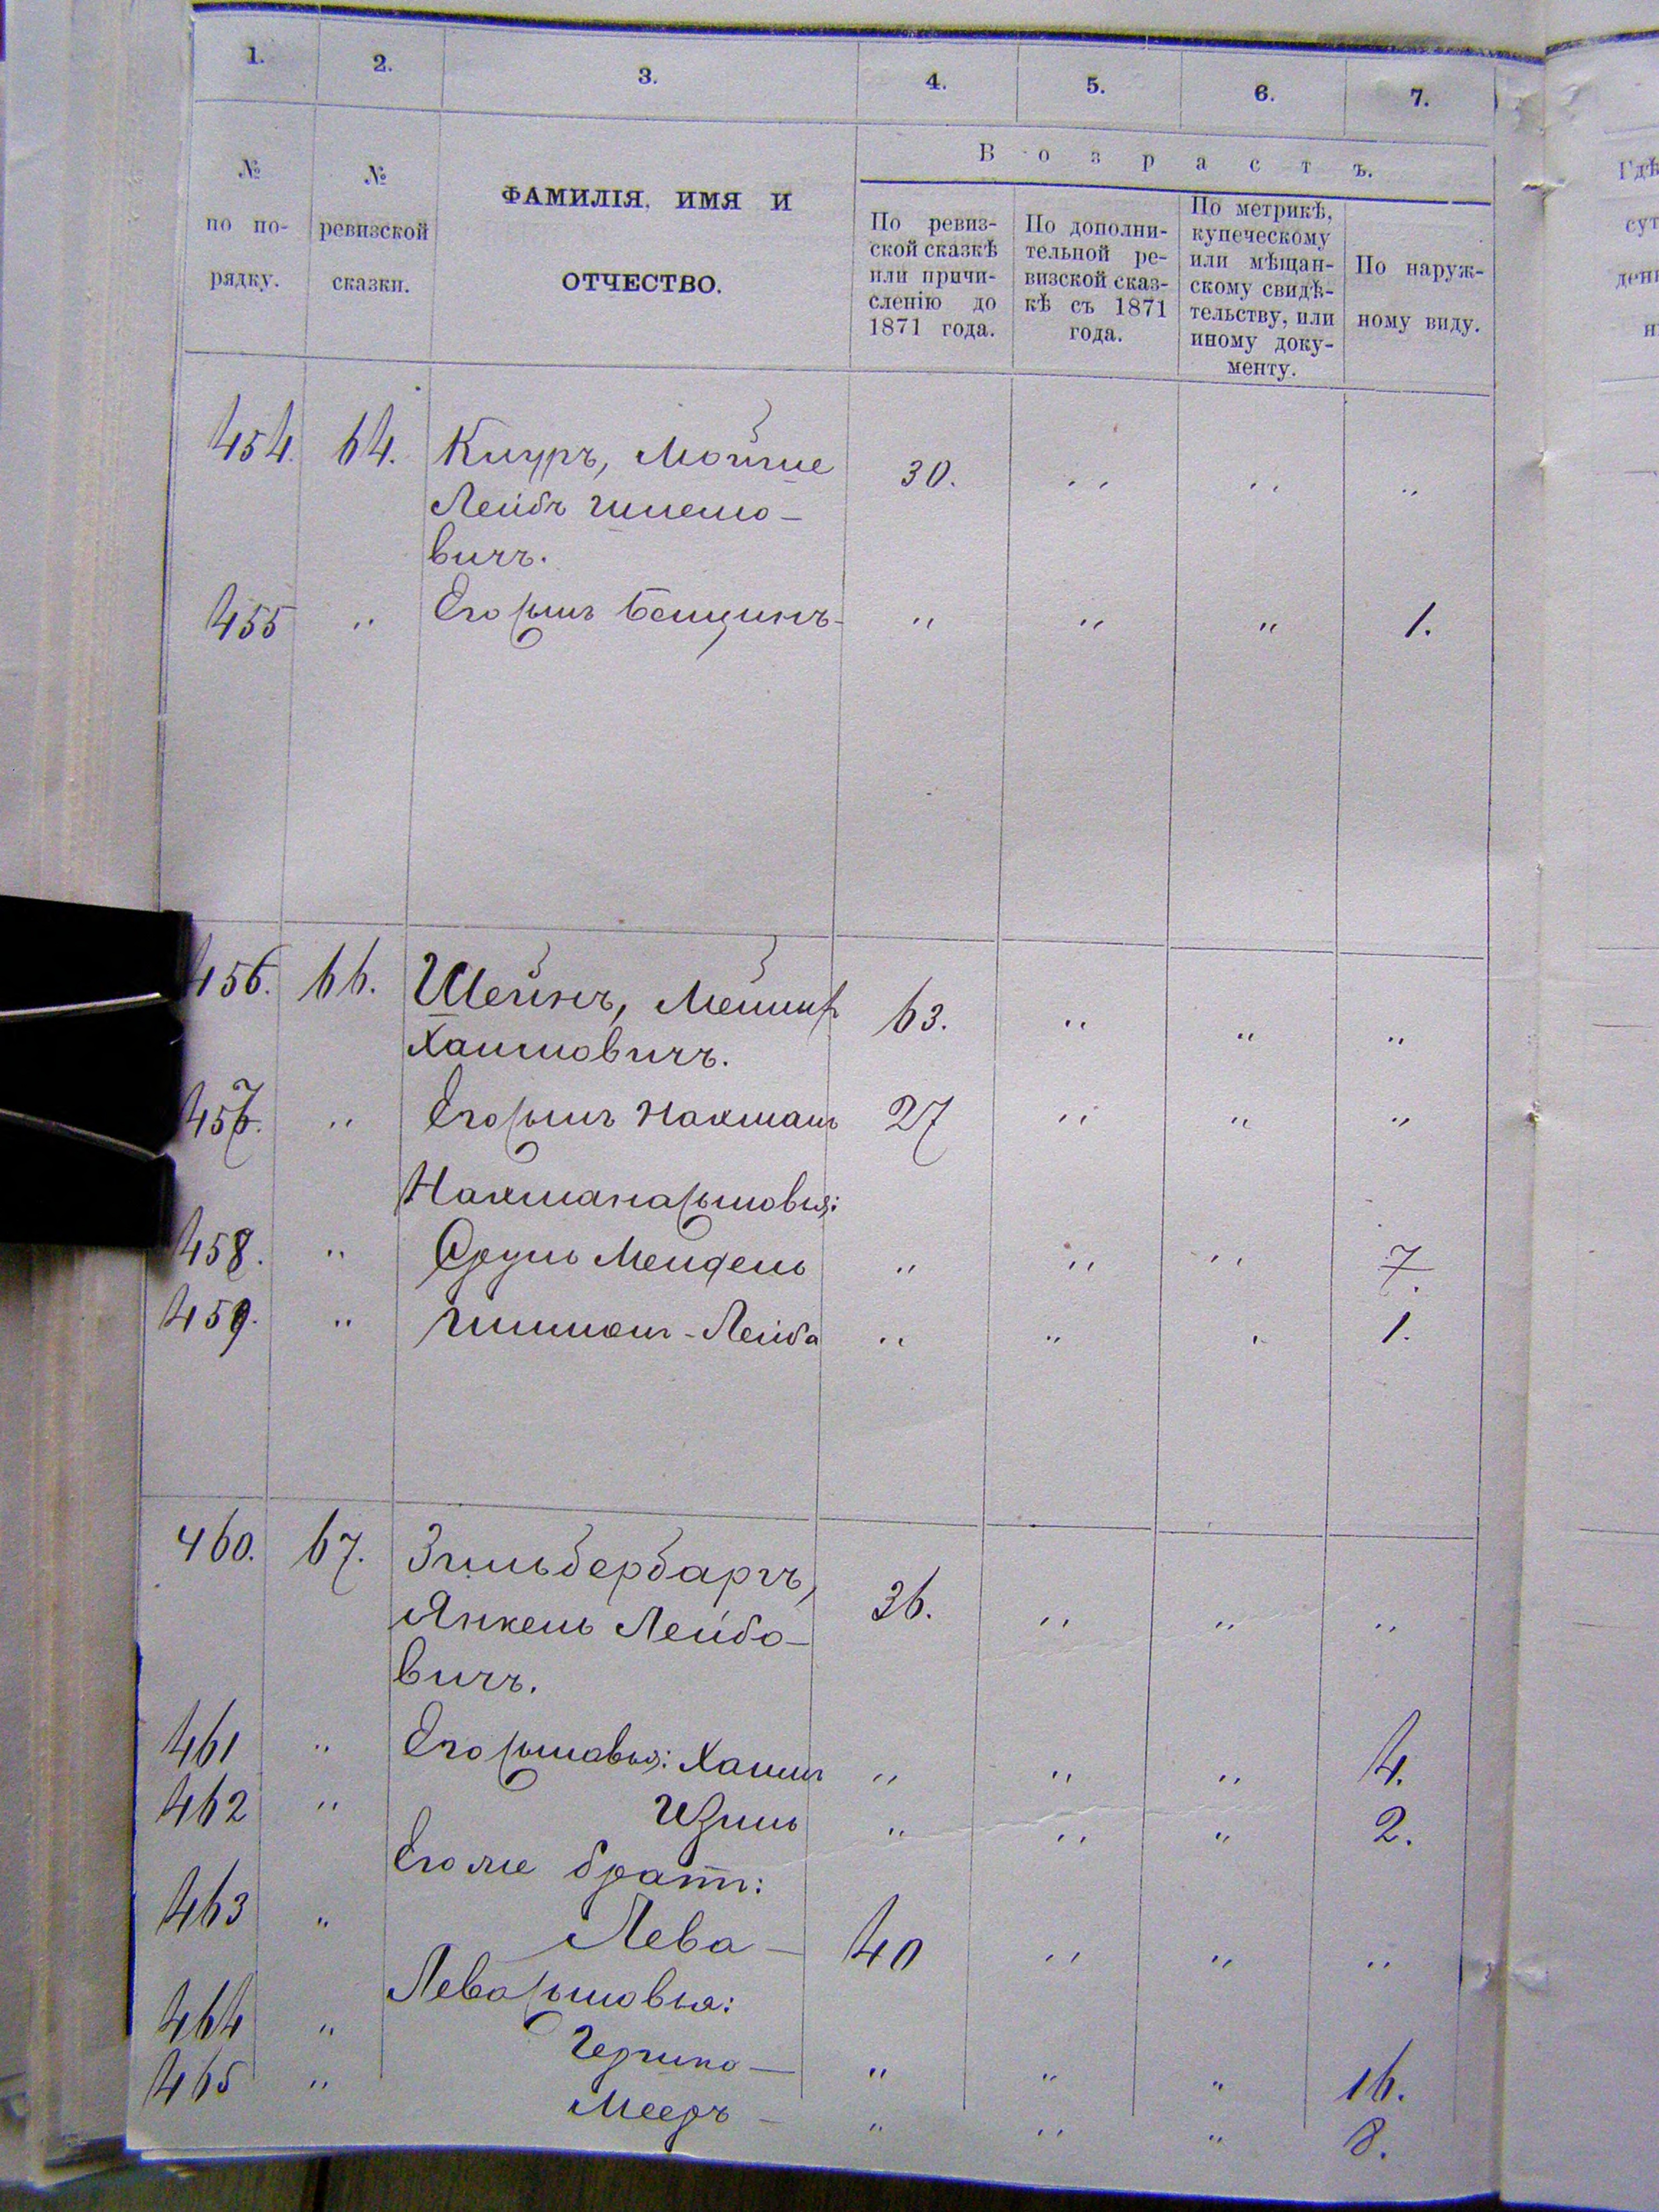 1. 2. 3. 4. 5. 6. 7.
№ по по-рядку.
№ ревизской сказки.
ФАМИЛІЯ, ИМЯ И
ОТЧЕСТВО.
Возрастъ.
По ревиз-
ской сказкѣ
или причи-
сленію до
1871 года.
По дополни-
тельной ре-
визской сказ-
кѣ съ 1871
года.
По метрикѣ,
купеческому
или мѣщан-
скому свидѣ-
тельству, или
иному доку-
менту.
По наруж-
ному виду.
454. 64. Мойше 30. " " "
Лейбъ
вичъ.
455 " Его сынъ " " " 1.
456. 66. Шейнъ, 63. " " "
Хаимовичъ.
457. " Его сынъ Нахманъ 27 " " "
Нахмана сыновья:
458. " Сруль Мендель " " " 7.
459. " Лейба " " " 1.
460. 67. Зильбербаргъ, 36. " " "
Янкель Лейбо-
вичъ.
461 " Его сыновья: Хаимъ " " " 4.
462 " " " " 2.
Его же братъ:
463 " Лева — 40 " " "
Лева сыновья:
464 " " " " 16.
465 " Мееръ — " " " 8.
Гдѣ